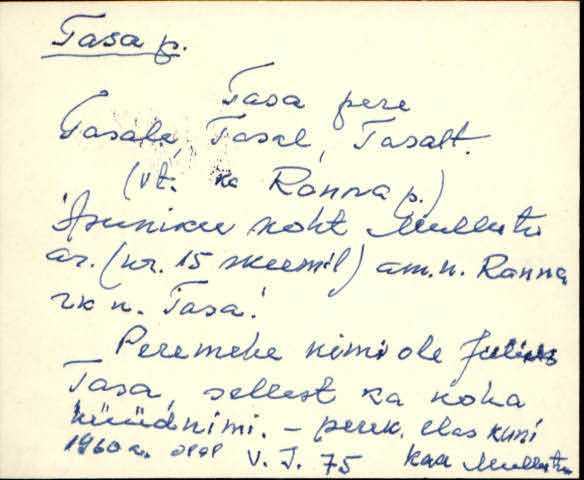 Tasa p.
Tasa pere
Tasale, Tasal, Tasalt.
(vt. ka Ranna p.)
Asuniku koht Mullutu
as. (nr. 15 skeemil) am.n. Ranna
rk n. Tasa.
Peremehe nimi ole Julius
Tasa, sellest ka koha
hüüdnimi. - perek. elas kuni
1960 a. seal
V. J. 75 kaa Mullutu